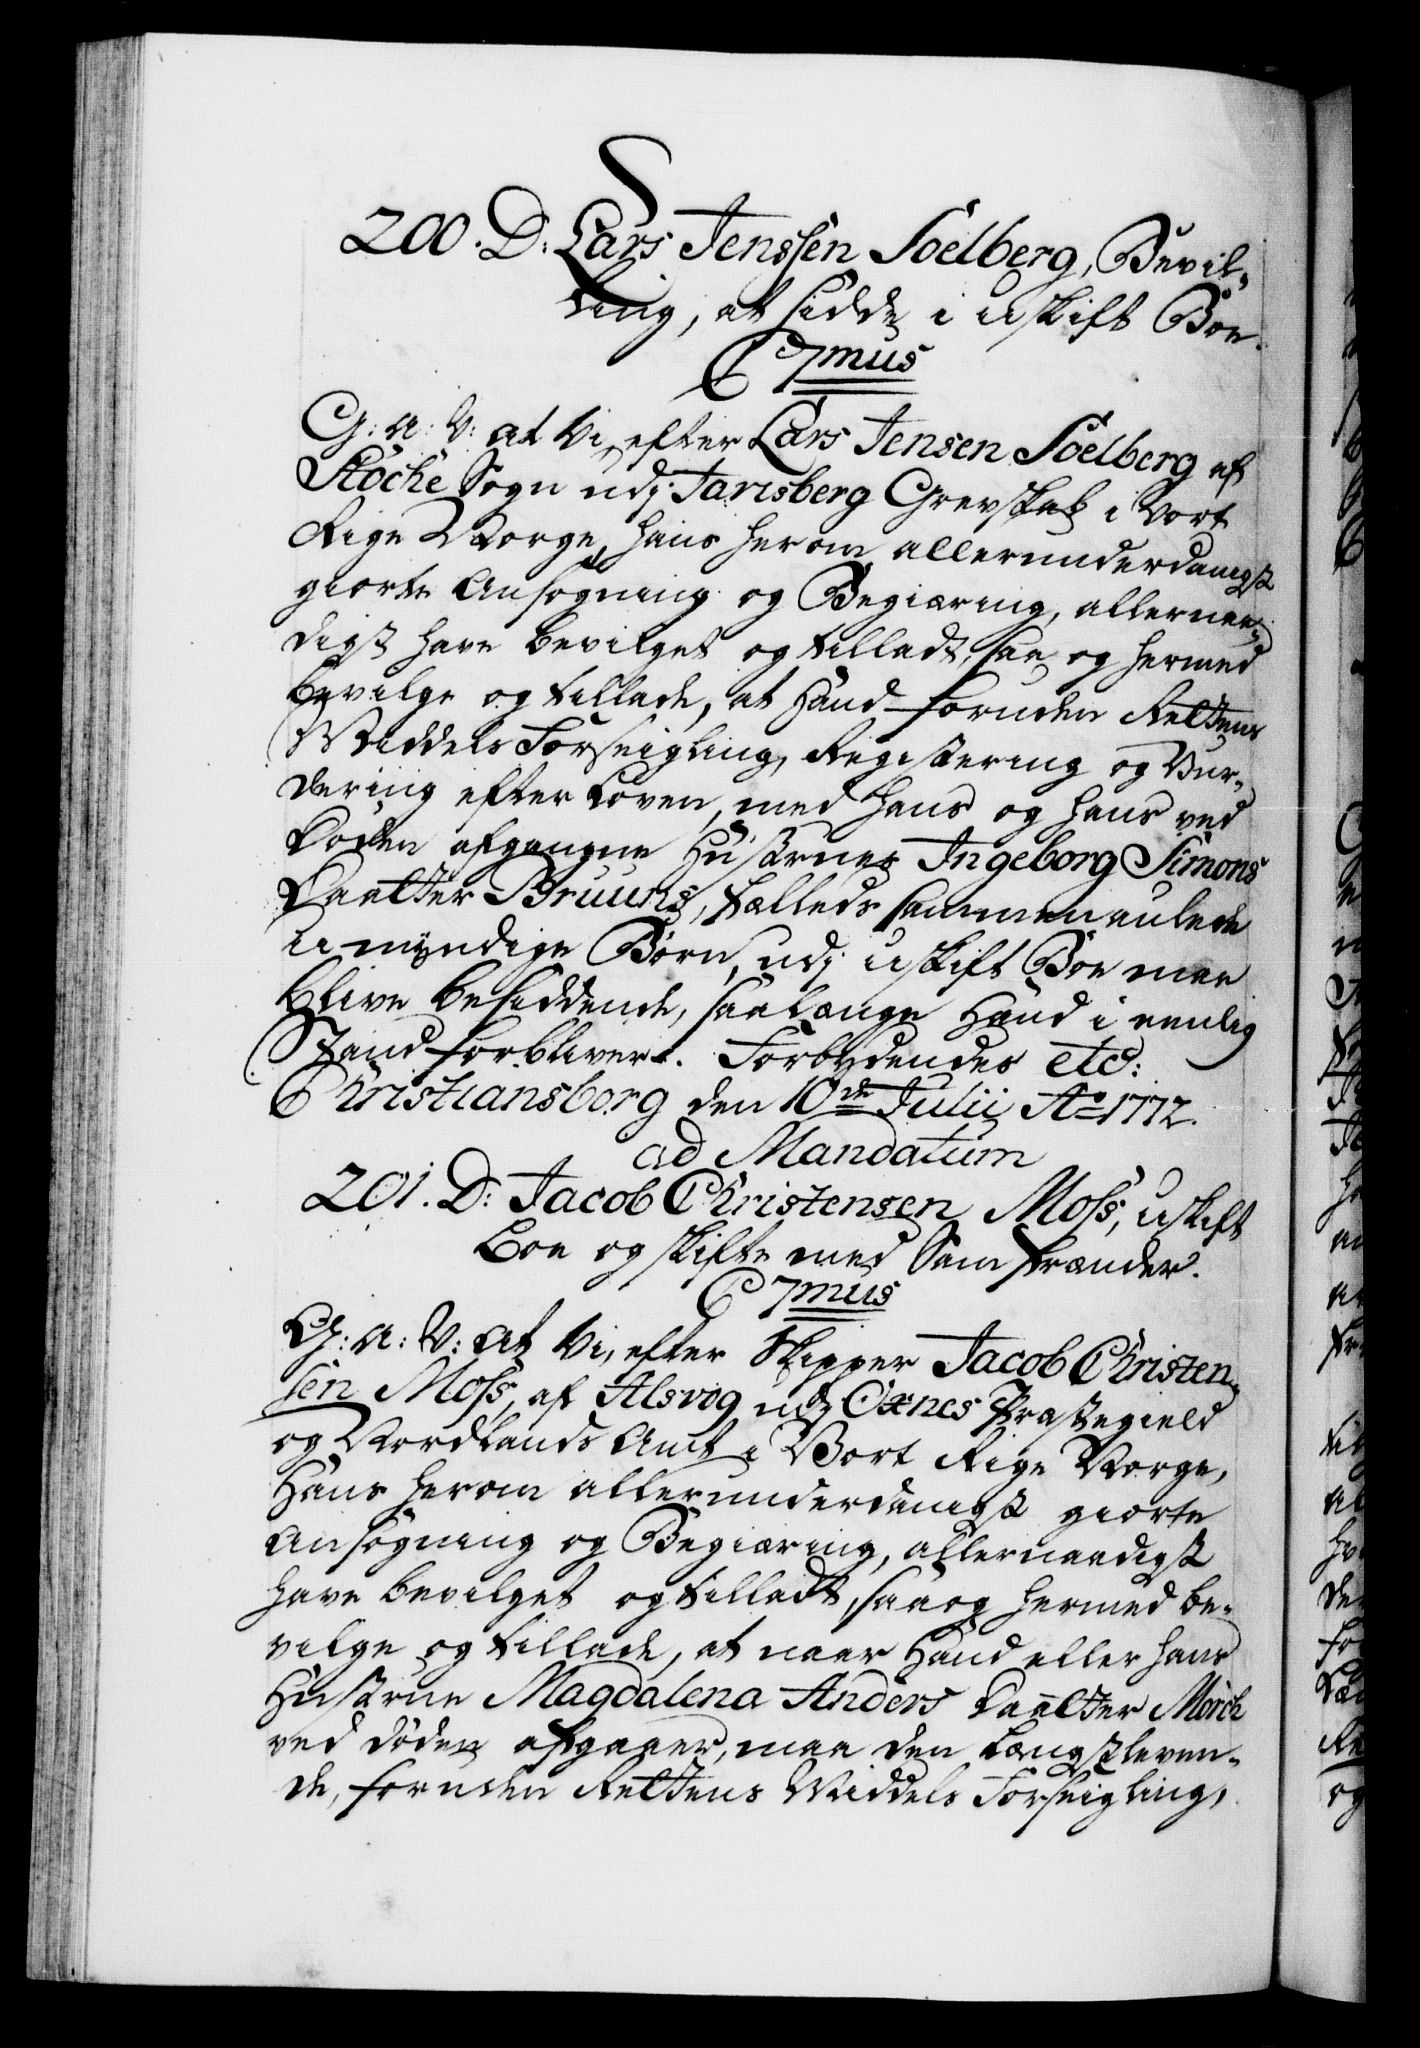 200. D: Lars Jenssen Soelberg, Bevil-
ling, at sidde i uskift Boe.
C 7mus
G: A: V: At Vi, efter Lars Jensen Soelberg af
Stöche Sogn udj Jarlsberg Grevskab i Vort
Rige Norge, hans herom allerunderdanigst
giorte Ansøgning og Begiæring, allernaa-
digst have bevilget og tilladt, saa og hermed
bevilge og tillade, at Hand foruden Rettens
Middels Forseigling, Registering og Vur-
dering efter Loven, med hans og hans ved
Døden afgangne Hustrues Ingeborg Simons
Daatter Bruuns, fælleds sammen aulede
umyndige Børn, udj uskift Boe maa
blive besiddende, saalænge Hand i eenlig
Stand forbliver. Forbydendes etc:
Christiansborg den 10de Julii Ao 1772.
ad Mandatum
201. D: Jacob Christensen Moss, uskift
Boe og skifte med Samfrænder.
C 7mus
G: A: V: At Vi, efter Skipper Jacob Christen-
sen Moss, af Alsvog udj Öxnes Præstegield
og Nordlands Amt i Vort Rige Norge,
Hans herom allerunderdanigst giorte
Ansøgning og Begiæring, allernaadigst
have bevilget og tilladt, saa og hermed be-
vilge og tillade, at naar Hand eller hans
Hustrue Magdalena Anders Daatter Mörch
ved døden afgaaer, maa den Længstleven-
de, foruden Rettens Middels Forseigling,